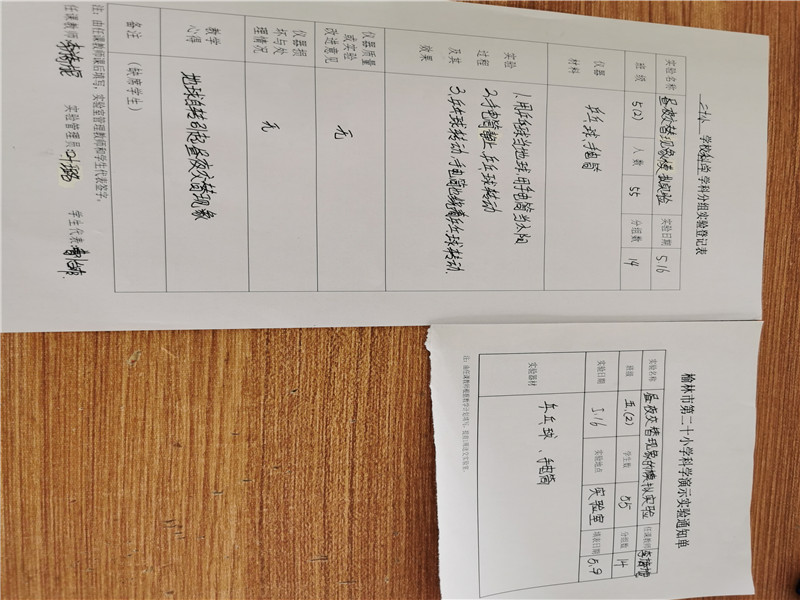 二十小 学校科学学科分组实验登记表
实验名称 昼夜交替现象模拟实验 实验日期 5.16
班级 5(2) 人数 55 分组数 14
仪器材料 乒乓球、手电筒
实验过程及其效果
1.用乒乓球当地球,用手电筒当太阳
2.手电筒静止,乒乓球转动
3.乒乓球转动,手电筒也绕着乒乓球转动.
仪器质量或实验改进意见 无
仪器损坏与处理情况 无
教学心得 地球自转引起昼夜交替现象
备注 (缺席学生)
注:由任课教师课后填写,实验室管理教师和学生代表签字。
任课教师 实验管理员 学生代表
榆林市第二十小学科学演示实验通知单
实验名称 昼夜交替现象的模拟实验 任课教师
班级 五.(2) 学生数 55 分组数 14
实验日期 5.16 实验地点 实验室 填表日期 5.9
实验器材 乒乓球、手电筒